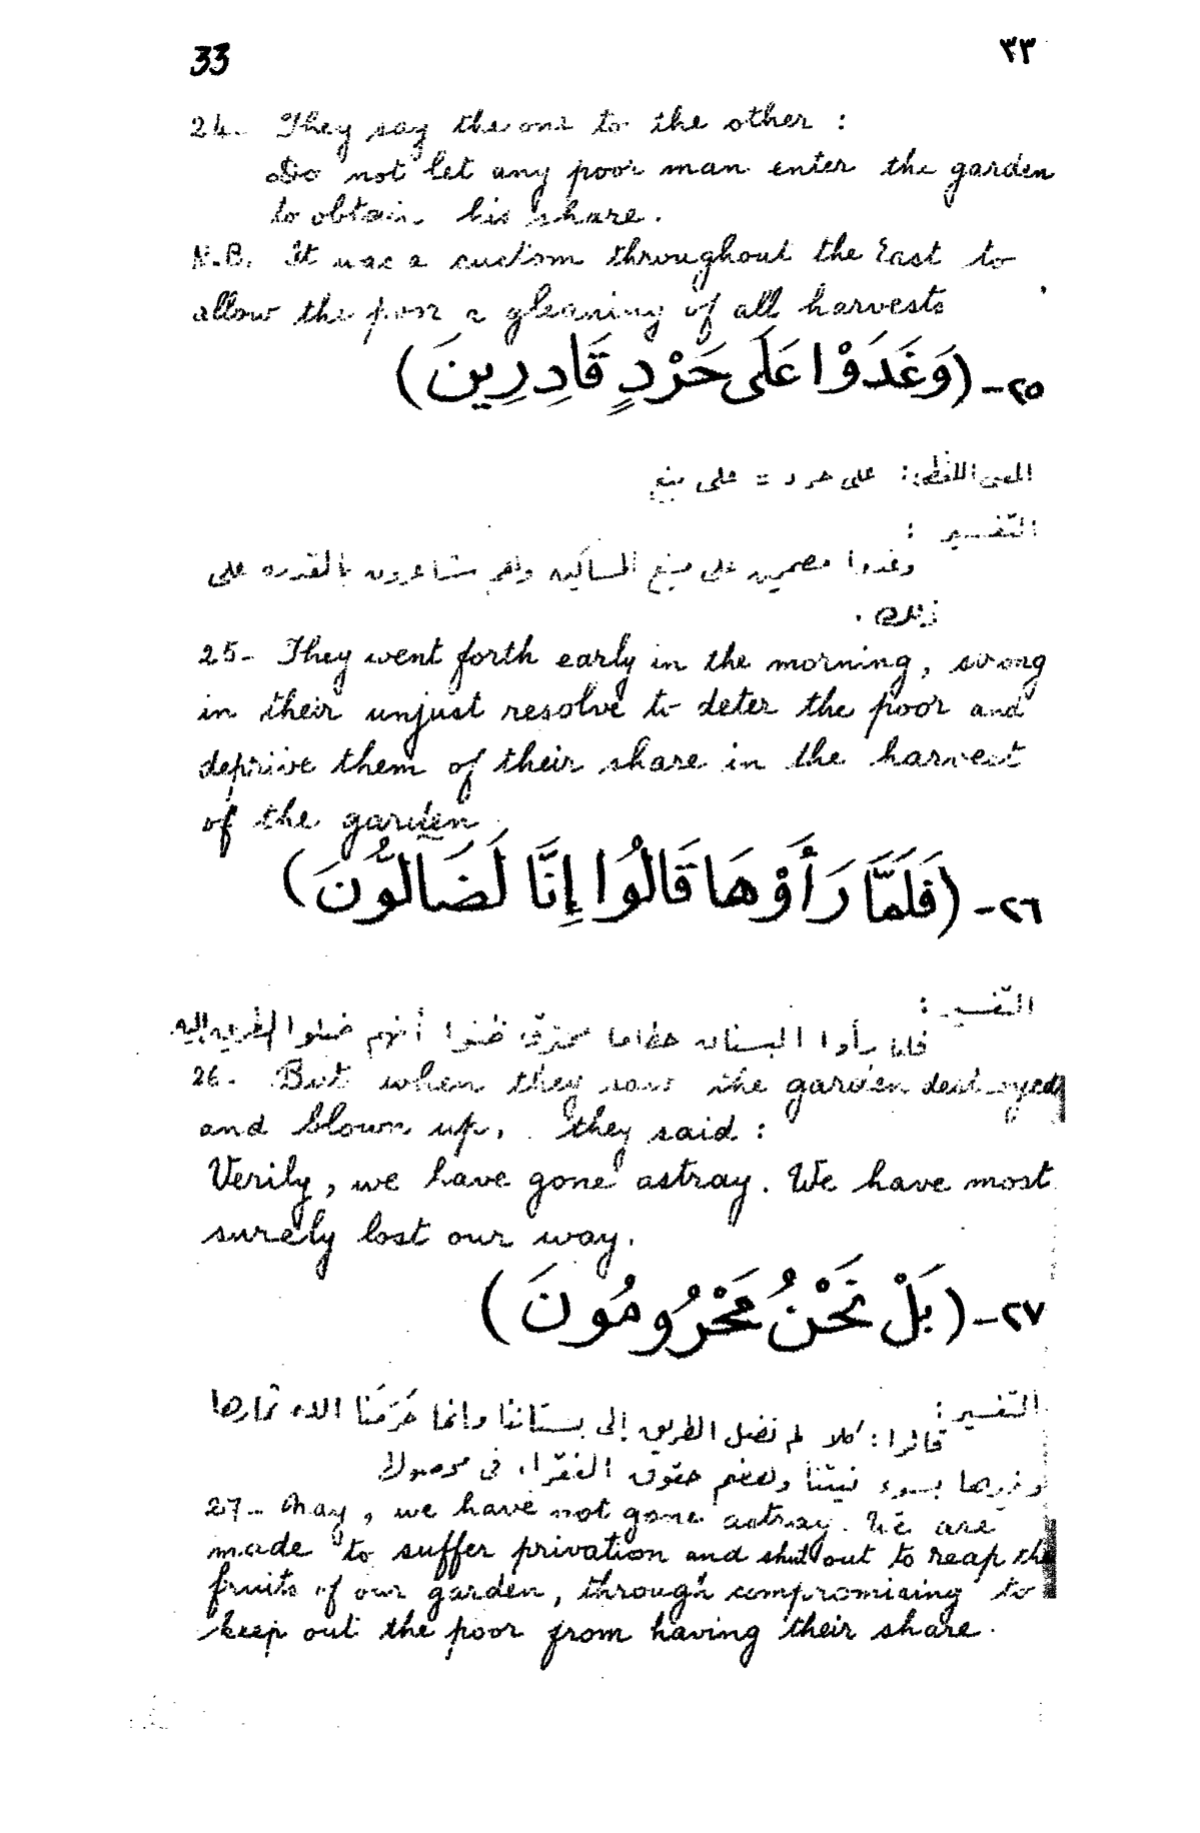 33
٣٣
24- They say the one to the other :
Do not let any poor man enter the garden
to obtain his share.
N.B. It was a custom throughout the East to
allow the poor a gleaning of all harvests
٢٥- (وَغَدَوْا عَلَى حَرْدٍ قَادِرِينَ)
المعنى اللفظى: على حرد = على منع
التفسير :
وغدوا مصممين على منع المساكين وهم شاعرون بالقدره على
ذلك .
25- They went forth early in the morning, strong
in their unjust resolve to deter the poor and
deprive them of their share in the harvest
of the garden
٢٦- (فَلَمَّا رَأَوْهَا قَالُوا إِنَّا لَضَالُّونَ)
التفسير :
فلما رأوا البستان حطاما محترق ظنوا أنهم ضلوا الطريق إليه
26- But when they saw the garden destroyed
and blown up, they said :
Verily, we have gone astray. We have most
surely lost our way.
٢٧- (بَلْ نَحْنُ مَحْرُومُونَ)
التفسير :
قالوا : كلا لم نضل الطريق إلى بستاننا وانما حَرَمَنا الله ثمارها
بسوء نيتنا وهضم حقوق الفقراء فى
27- Nay, we have not gone astray. We are
made to suffer privation and shut out to reap the
fruits of our garden, through compromising to
keep out the poor from having their share.